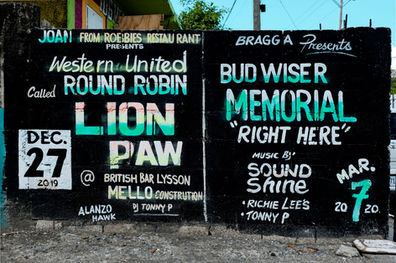 JOAN FROM ROEBIES RESTAURANT
PRESENTS
Western United
Called ROUND ROBIN
LION
PAW
DEC.
27
2019
@ BRITISH BAR LYSSON
MELLO CONSTRUTION
DJ TONNY P
ALANZO
HAWK
BRAGGA Presents
BUDWISER
MEMORIAL
"RIGHT HERE"
MUSIC BY
SOUND
Shine
• RICHIE LEE'S
• TONNY P
MAR.
7
2020.